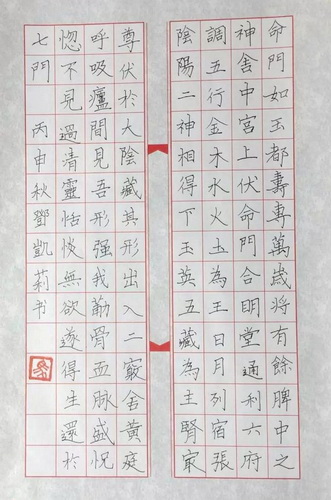 命門如玉都壽專萬歲將有餘脾中之
神舍中宮上伏命門合明堂通利六府
調五行金木水火土為王日月列宿張
陰陽二神相得下玉英五藏為主腎最
尊伏於大陰藏其形出入二竅舍黃庭
呼吸廬間見吾形强我筋骨血脉盛怳
惚不見過清靈恬惔無欲遂得生還於
七門 丙申秋鄧凱莉书